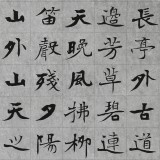 長亭外古道
邊芳草碧連
天晚風拂柳
笛聲殘夕陽
山外山天之